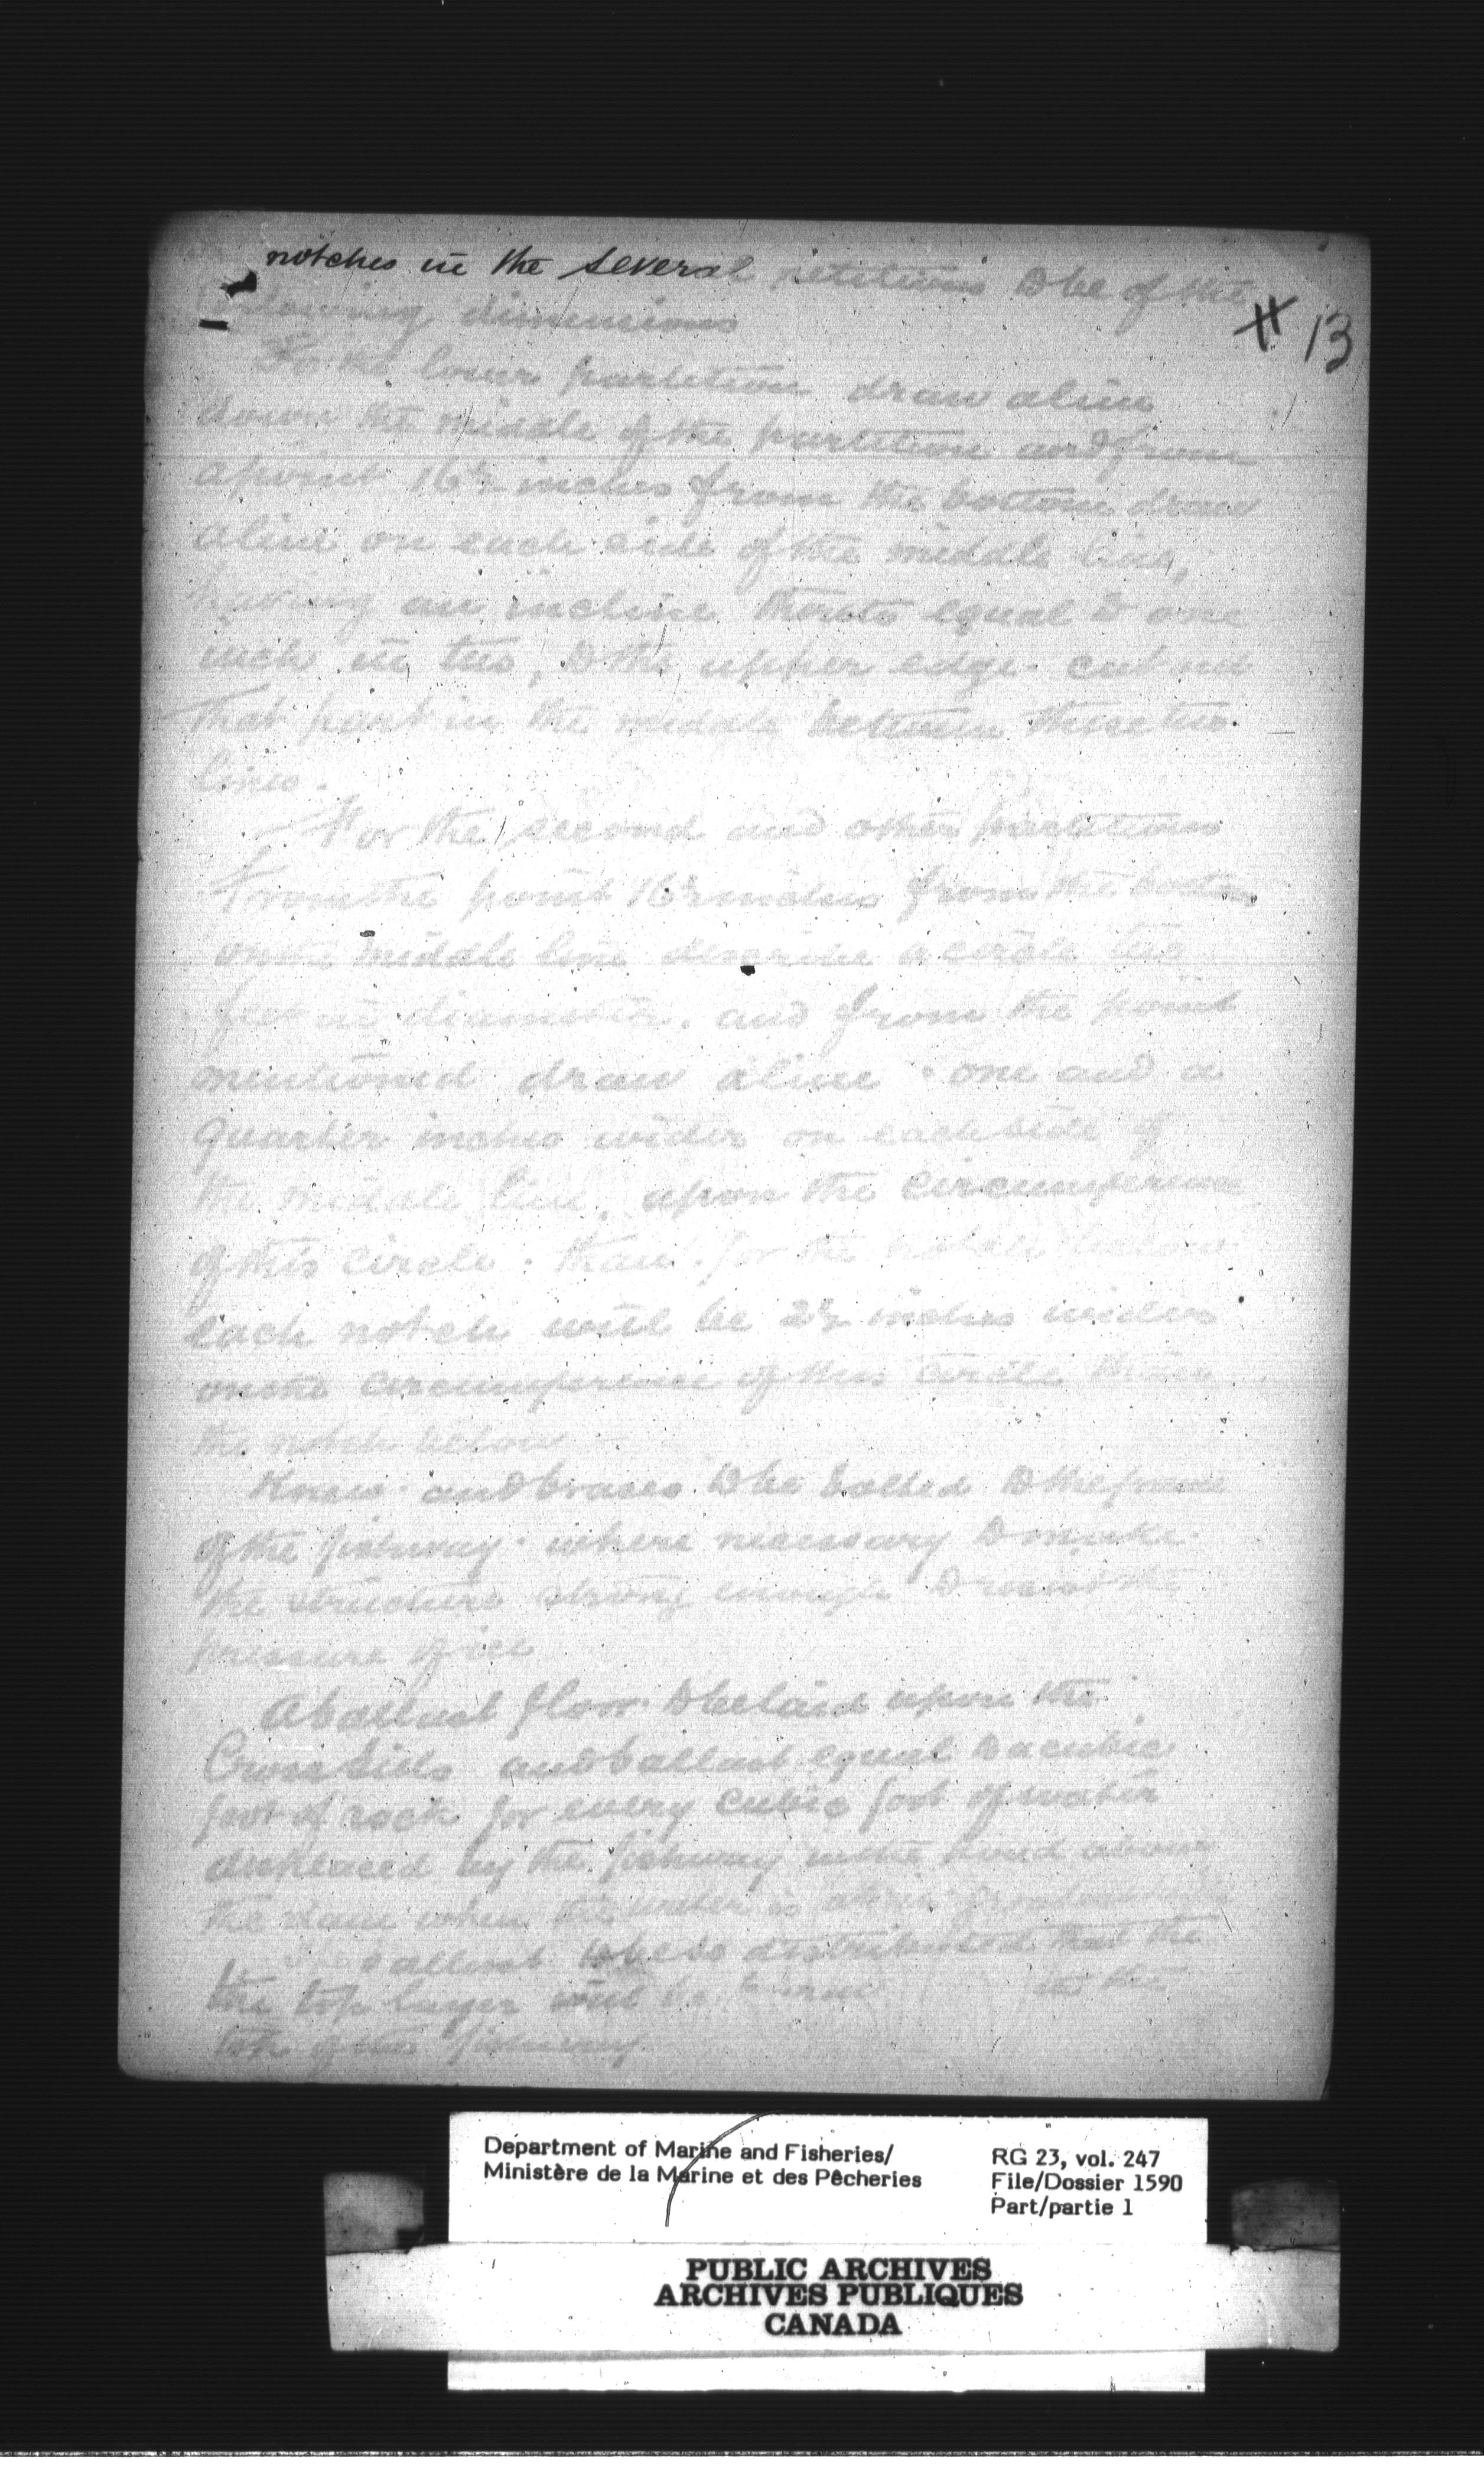 notches in the several petitions to be of the
dimensions
13
For the lower partition draw a line
down the middle of the partition and from
a point 16½ inches from the bottom draw
a line on each side of the middle line,
having an incline thereto equal to one
inch in two, to the upper edge. cut out
that part in the middle between these two
lines.
For the second and other partitions
From the point 16½ inches from the bottom
on the middle line describe a circle two
feet in diameter. and from the point
mentioned draw a line one and a
quarter inches wider on each side of
the middle line, upon the circumference
of this circle. than for the notch below
each notch will be 2½ inches wider
on the circumference of this circle than
the notch below
Knees and braces to be bolted to the frame
of the fishway where necessary to make
the structure strong enough to resist the
pressure of ice
A ballast floor to be laid upon the
Cross Sills and ballast equal to a cubic
foot of rock for every cubic foot of water
displaced by the fishway in the pond above
the dam when the water is
ballast to be so distributed that the
the top layer will be in the
top of the fishway
Department of Marine and Fisheries/
Ministère de la Marine et des Pêcheries
RG 23, vol. 247
File/Dossier 1590
Part/partie 1
PUBLIC ARCHIVES
ARCHIVES PUBLIQUES
CANADA